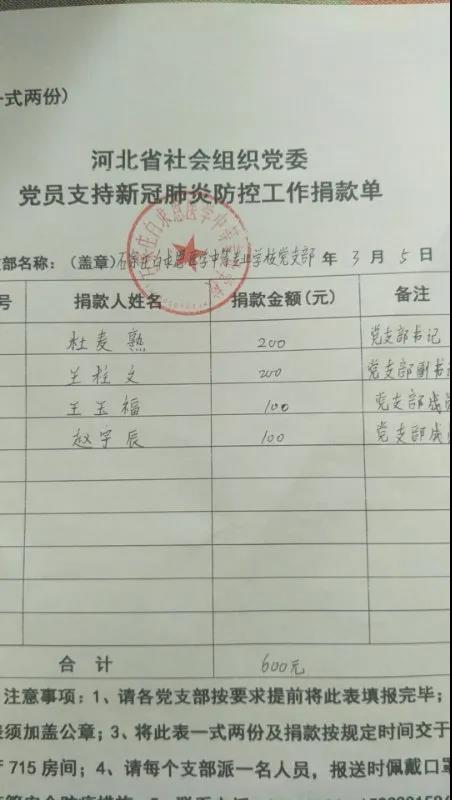 一式两份)
河北省社会组织党委
党员支持新冠肺炎防控工作捐款单
部名称：（盖章）石家庄白求恩医学中等专业学校党支部 年 3 月 5 日
号 捐款人姓名 捐款金额(元) 备注
杜麦熟 200 党支部书记
兰柱文 200 党支部副书
王玉福 100 党支部成员
赵宇辰 100 党支部成
合 计 600元
注意事项：1、请各党支部按要求提前将此表填报完毕；
须加盖公章；3、将此表一式两份及捐款按规定时间交于
715 房间；4、请每个支部派一名人员，报送时佩戴口罩